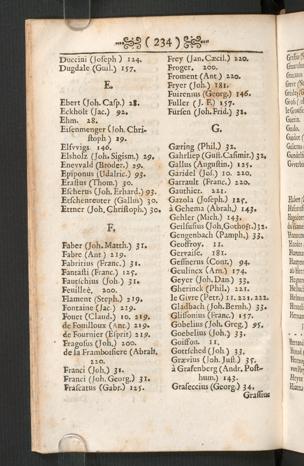 ( 234 )
Duccini (Joseph) 124.
Dugdale (Guil.) 157.
E.
Ebert (Joh. Casp.) 28.
Eckholt (Jac.) 92.
Ehm. 28.
Eisenmenger (Joh. Chri-
stoph.) 29.
Elsvvigs 146.
Elsholz (Joh. Sigism.) 29.
Enevvald (Broder.) 29.
Epiponus (Udalric.) 93.
Erastus (Thom.) 30.
Escherus (Joh. Erhard.) 93.
Etschenreuter (Gallus) 30.
Ettner (Joh. Christoph.) 30.
F.
Faber (Joh. Matth.) 31.
Fabre (Ant) 219.
Fabritius (Franc.) 31.
Fantasti (Franc.) 125.
Fautschius (Joh.) 31.
Feuilleé, 200.
Flament (Steph.) 219.
Fontaine (Jac.) 219.
Fouet (Claud.) 10. 219.
de Fomilloux (Anr. 219.
de Fournier (Esprit) 219.
Fragosus (Joh.) 200.
de la Framboisiere (Abralt.
220.
Franci (Joh.) 31.
Franci (Joh. Georg.) 31.
Frascatus (Gabr.) 125.
Frey (Jan. Cæcil.) 220.
Froger. 200.
Froment (Ant.) 220.
Fryer (Joh.) 181.
Fuirenus (Georg.) 146.
Fuller (J. F.) 157.
Fursen (Joh. Frid.) 32.
G.
Gæring (Phil.) 32.
Gahrliep (Gust. Casimir.) 32.
Gallus (Augustin.) 125.
Garidel (Jos.) 10. 220.
Garrault (Franc.) 220.
Gauthier. 221.
Gazola (Joseph.) 125.
à Gehema (Abrah.) 143.
Gehler (Mich.) 143.
Geilfusius (Joh. Gothoft.) 32.
Gengenbach (Pamph.) 33.
Geoffroy. 11.
Gervaise. 181.
Gesnerus (Conr.) 94.
Geulincx (Arn.) 174.
Geyer (Joh. Dan.) 33.
Gherinck (Phil.) 221.
le Givre (Petr.) 11. 221. 222.
Gladbach (Joh. Bernh.) 33.
Glissonius (Franc.) 157.
Gobelius (Joh. Greg.) 95.
Goebelius (Joh.) 33.
Goiffon. 11.
Gottsched (Joh.) 33.
Grævius (Joh. Just.) 35.
à Grafenberg (Andr. Post-
hum.) 143.
Grafeccius (Georg.) 34.
Grassius